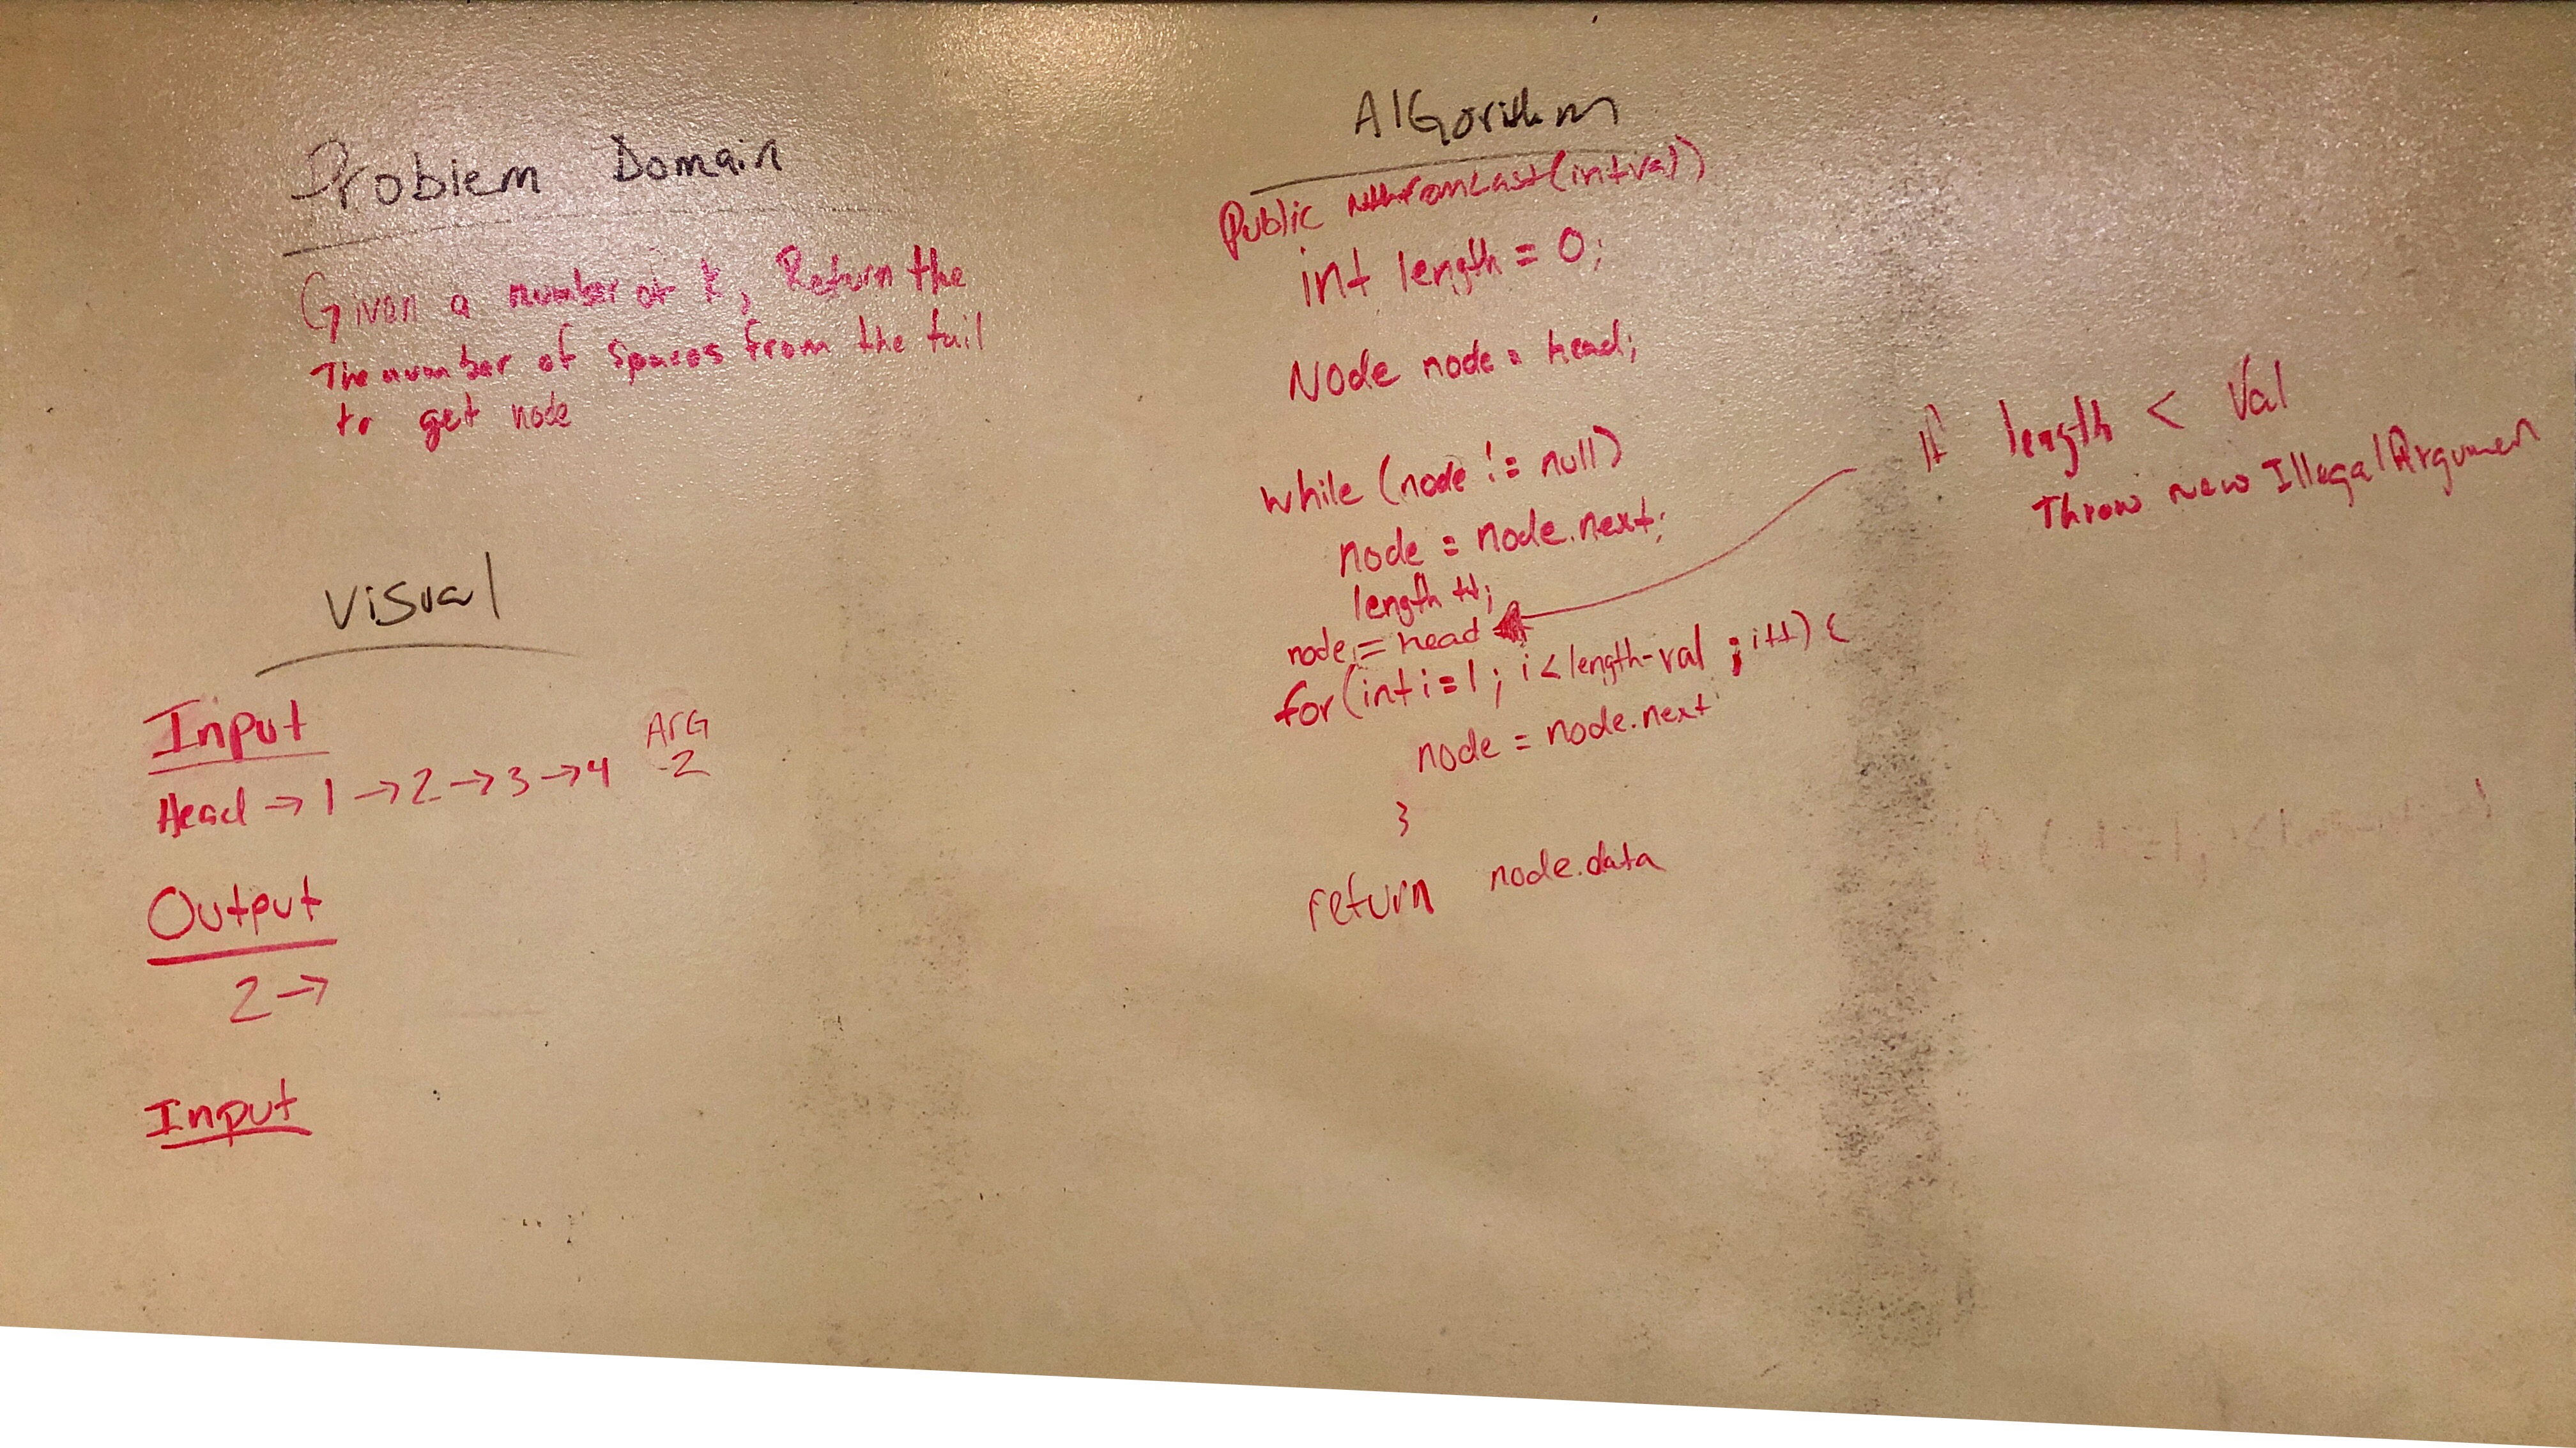 Problem Domain
Given a number of k, Return the
The number of spaces from the tail
to get node
Visual
Input
ArG
2
Head → 1 → 2 → 3 → 4
Output
2 →
Input
AlGorithm
Public NthFromLast(int val)
int length = 0;
Node node = head;
while (node != null)
node = node.next;
length ++;
node = head
for (int i = 1; i < length - val ; i++) {
node = node.next
}
return node.data
If length < Val
Throw new IllegalArgumen